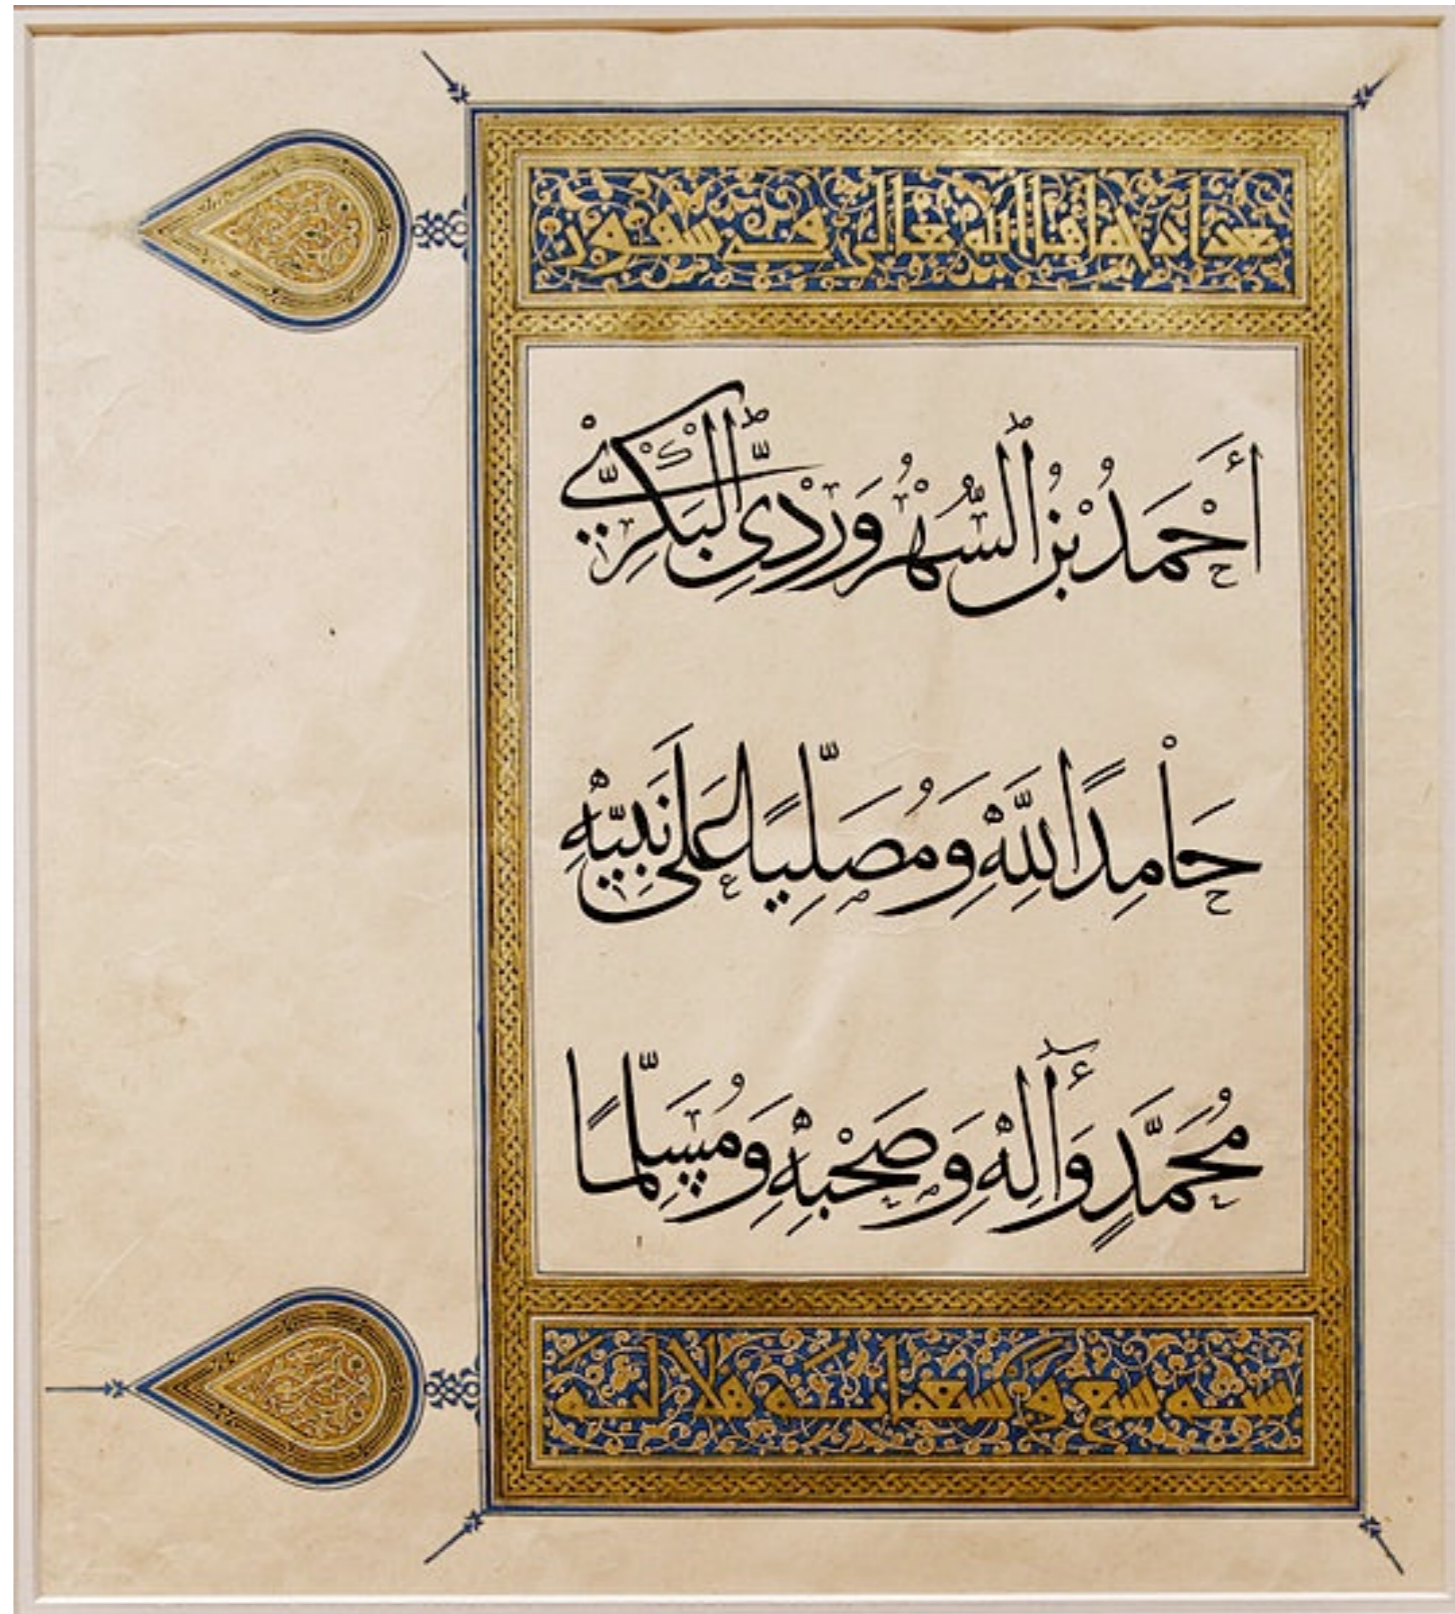 بغداد حماها الله تعالى في شهور
أَحْمَدُ بْنُ ٱلسُّهْرُوَرْدِيِّ ٱلْبَكْرِيِّ
حَامِدًا لِلَّهِ وَمُصَلِّيًا عَلَى نَبِيِّهِ
مُحَمَّدٍ وَآلِهِ وَصَحْبِهِ وَمُسَلِّمًا
سنة سبع وسبعمائة هلالية